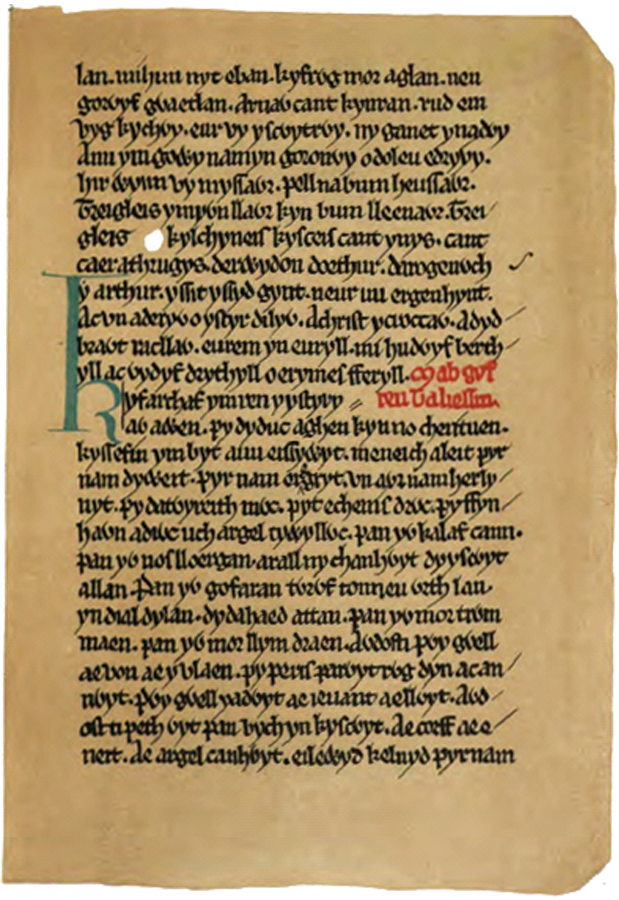 lan. mihun nyt eban. kyfrỽg mor aglan. neu
gorỽyf gỽaetlan. Arnaỽ cant kynran. rud em
vyg kychỽy. eur vy yscỽytrỽy. ny ganet ynadỽy
Auu ym gỽỽy namyn goronỽy o doleu edryỽy.
hir ỽynn vy myssaỽr. pell na bum heussaỽr.
Treigleis ymyỽn llaỽr kyn bum lleenaỽr. Trei
gleis kylchyneis kysceis cant ynys. cant
caer athrugys. derỽydon doethur. darogenỽch
y arthur. yssit yssyd gynt. neur uu ergenhynt.
Ac vn aderyỽ o ystyr dilyỽ. A christ y croccaỽ. A dyd
braỽt racllaỽ. eurem yn euryll. mi hudỽyf berth
yll ac vydyf drythyll o erymes fferyll. Mab gyf
Kyfarchaf ym ren y ystyry reu Taliessin.
aỽ aỽen. py dyduc aghen kyn no cherituen.
kyssefin ym byt auu eissyỽyt. meneich aleit pyr
nam dyweit. pyr nam eisgyt. vn aỽr nam herly
nyt. py datỽyreith mỽc. pyt echenis drỽc. py ffyn
haỽn adiỽc uch argel tyỽyllỽc. pan yỽ kalaf cann.
pan yỽ nos lloergan. arall ny chanhỽyt dy yscỽyt
allan. Pan yỽ gofaran tỽrỽf tonneu ỽrth lan.
yn dial dylan. dydahaed attan. pan yỽ mor trỽm
maen. pan yỽ mor llym draen. Aỽdosti pỽy gỽell
ae von ae y vlaen. py peris parỽyt rỽg dyn ac an
nỽyt. pỽy gỽell y adỽyt ae ieuanc ae llỽyt. Aỽd
osti peth ỽyt pan vych yn kyscỽyt. Ae corff ae e
neit. Ae argel canhỽyt. eilewyd keluyd pyr nam